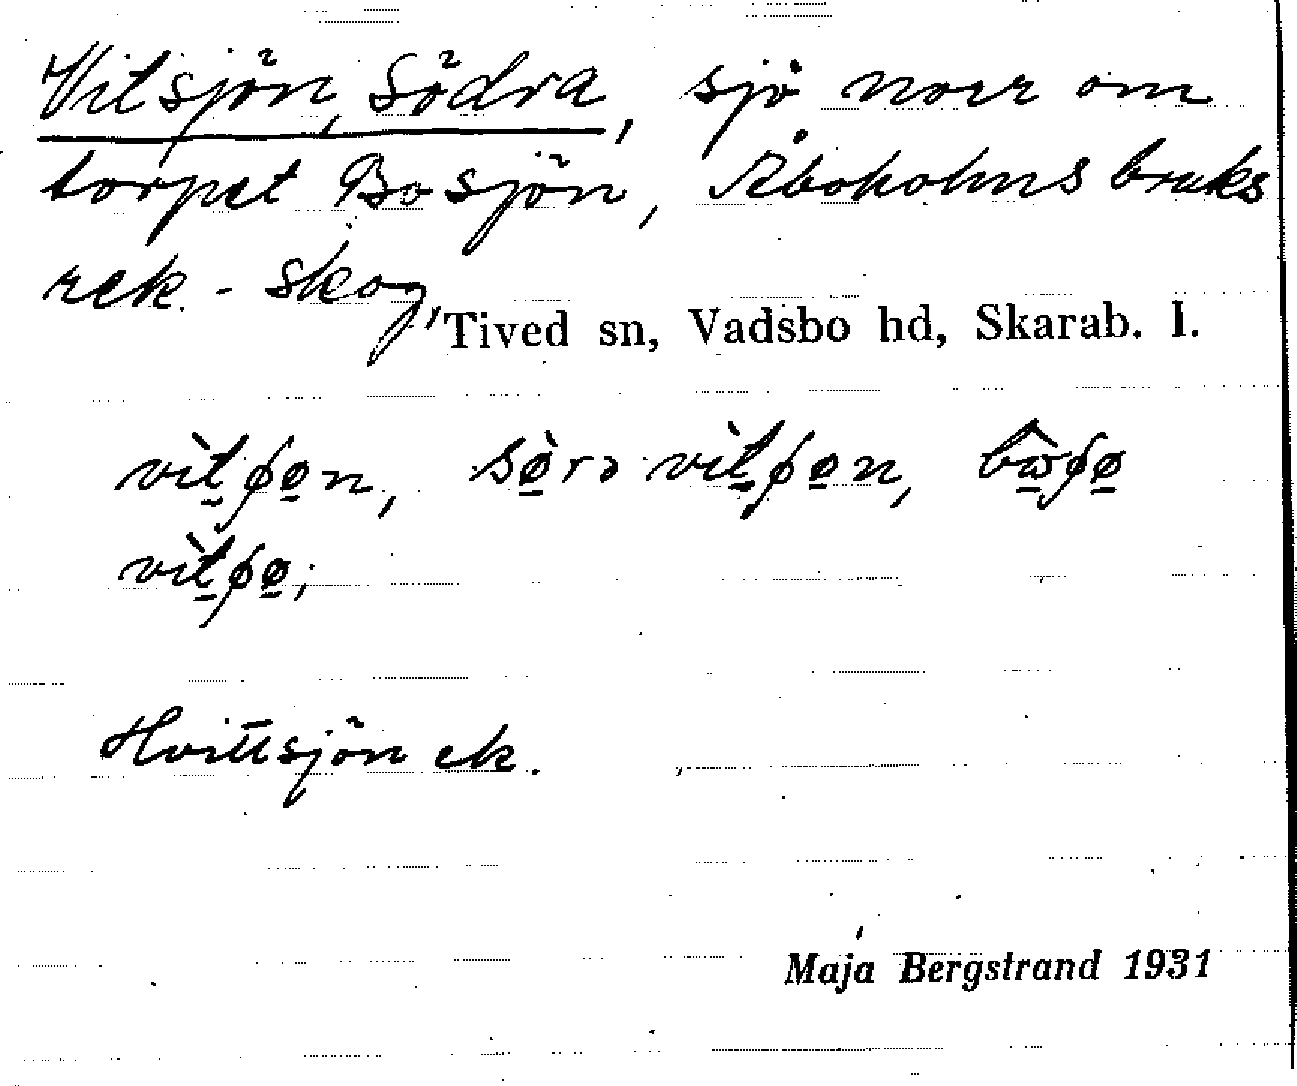 Vitsjön, Södra, sjö norr om
torpet Bosjön, Åboholms bruks
rek.-skog,
Tived sn, Vadsbo hd, Skarab. l.
vìt̲ʃø̲n, sø̲̀rə vìt̲ʃø̲n,
vìt̲ʃø̲;
Hvittsjön ek.
Maja Bergstrand 1931